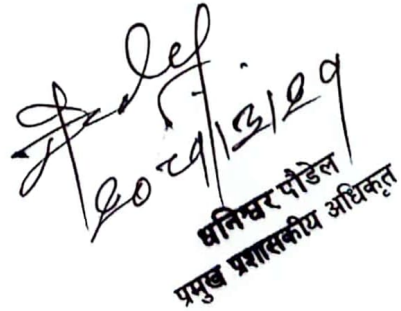 २०८१।३।२१
धनिश्वर पौडेल
प्रमुख प्रशासकीय अधिकृत